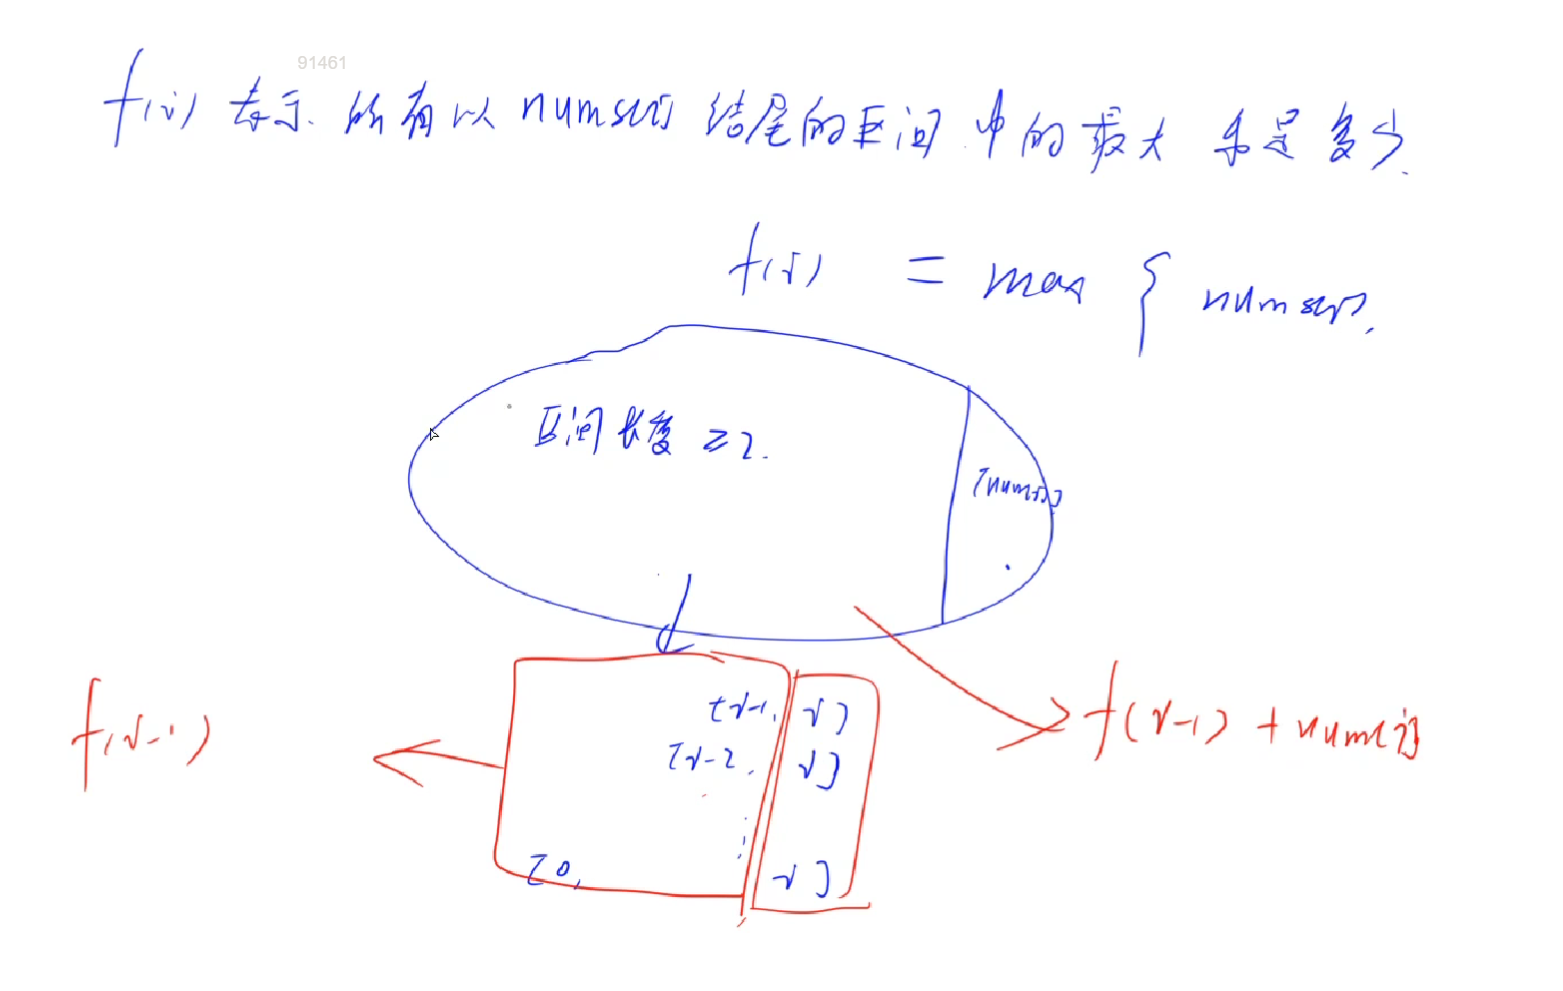 91461
f(i) 表示 所有以 nums[i] 结尾的区间 中的最大 和是多少.
f(i) = max { nums[i],
区间长度 ≥2.
[nums[i]]
[i-1, i]
f(i-1)
f(i-1) + nums[i]
[i-2, i]
[0, i]